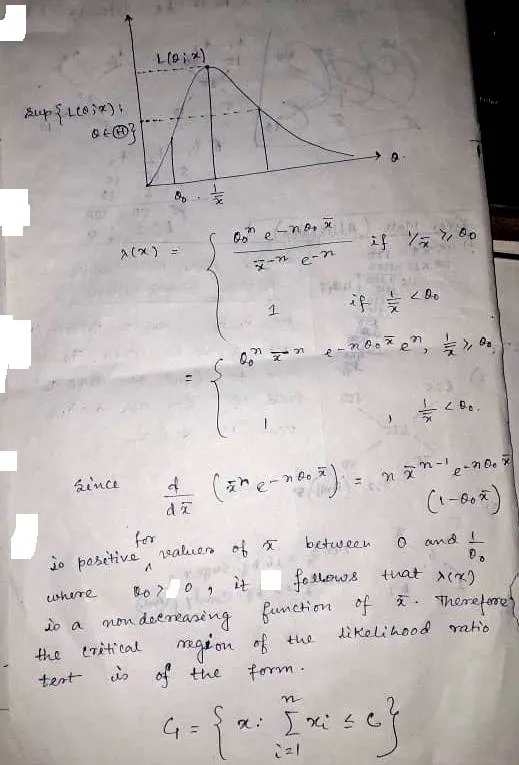 L(θ;x)
Sup{L(θ;x);
θ∈Ⓗ}
θ₀ 1/x̄ θ
λ(x) = { θ₀ⁿ e^{-nθ₀x̄} / x̄⁻ⁿ e⁻ⁿ if 1/x̄ ≥ θ₀
1 if 1/x̄ < θ₀
= { θ₀ⁿ x̄⁻ⁿ e^{-nθ₀x̄} eⁿ, 1/x̄ ≥ θ₀,
1 , 1/x̄ < θ₀.
Since d/dx̄ (x̄ⁿ e^{-nθ₀x̄}) = n x̄^{n-1} e^{-nθ₀x̄}
(1-θ₀x̄)
is positive for values of x̄ between 0 and 1/θ₀
where θ₀ > 0, it follows that λ(x)
is a nondecreasing function of x̄. Therefore,
the critical region of the likelihood ratio
test is of the form.
C₁ = { x: Σ_{i=1}^{n} xi ≤ C }